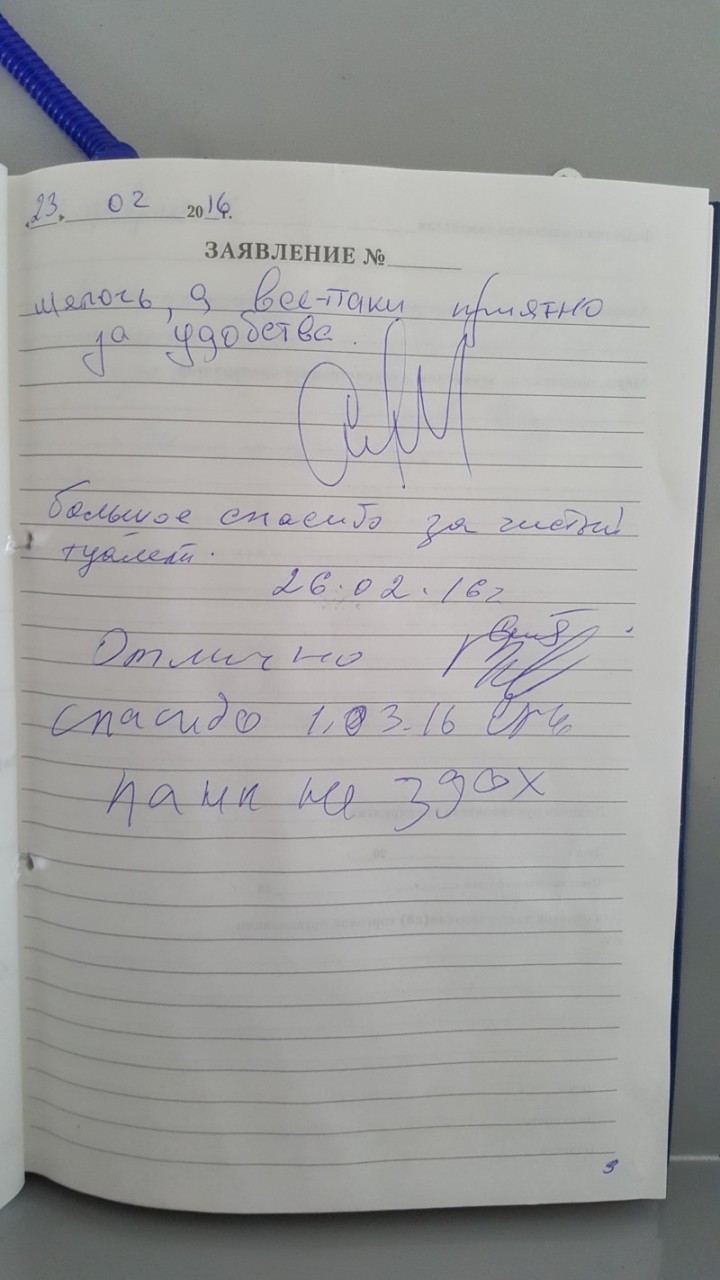 «23» 02 2016г.
ЗАЯВЛЕНИЕ №
мелочь, а все-таки приятно
за удобства.
большое спасибо за чистый
туалет.
26.02.16г
Отлично
спасибо 1.03.16
панк не здох
3